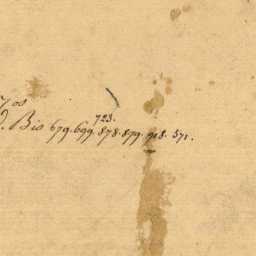 723.
. Bis 679. 699. 878. 879. 918. 571.